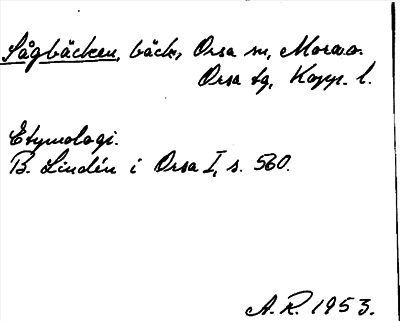 Sågbäcken, bäck, Orsa sn, Mora o.
Orsa tg, Kopp. l.
Etymologi.
B. Lindén i Orsa I, s. 560.
A.R. 1953.